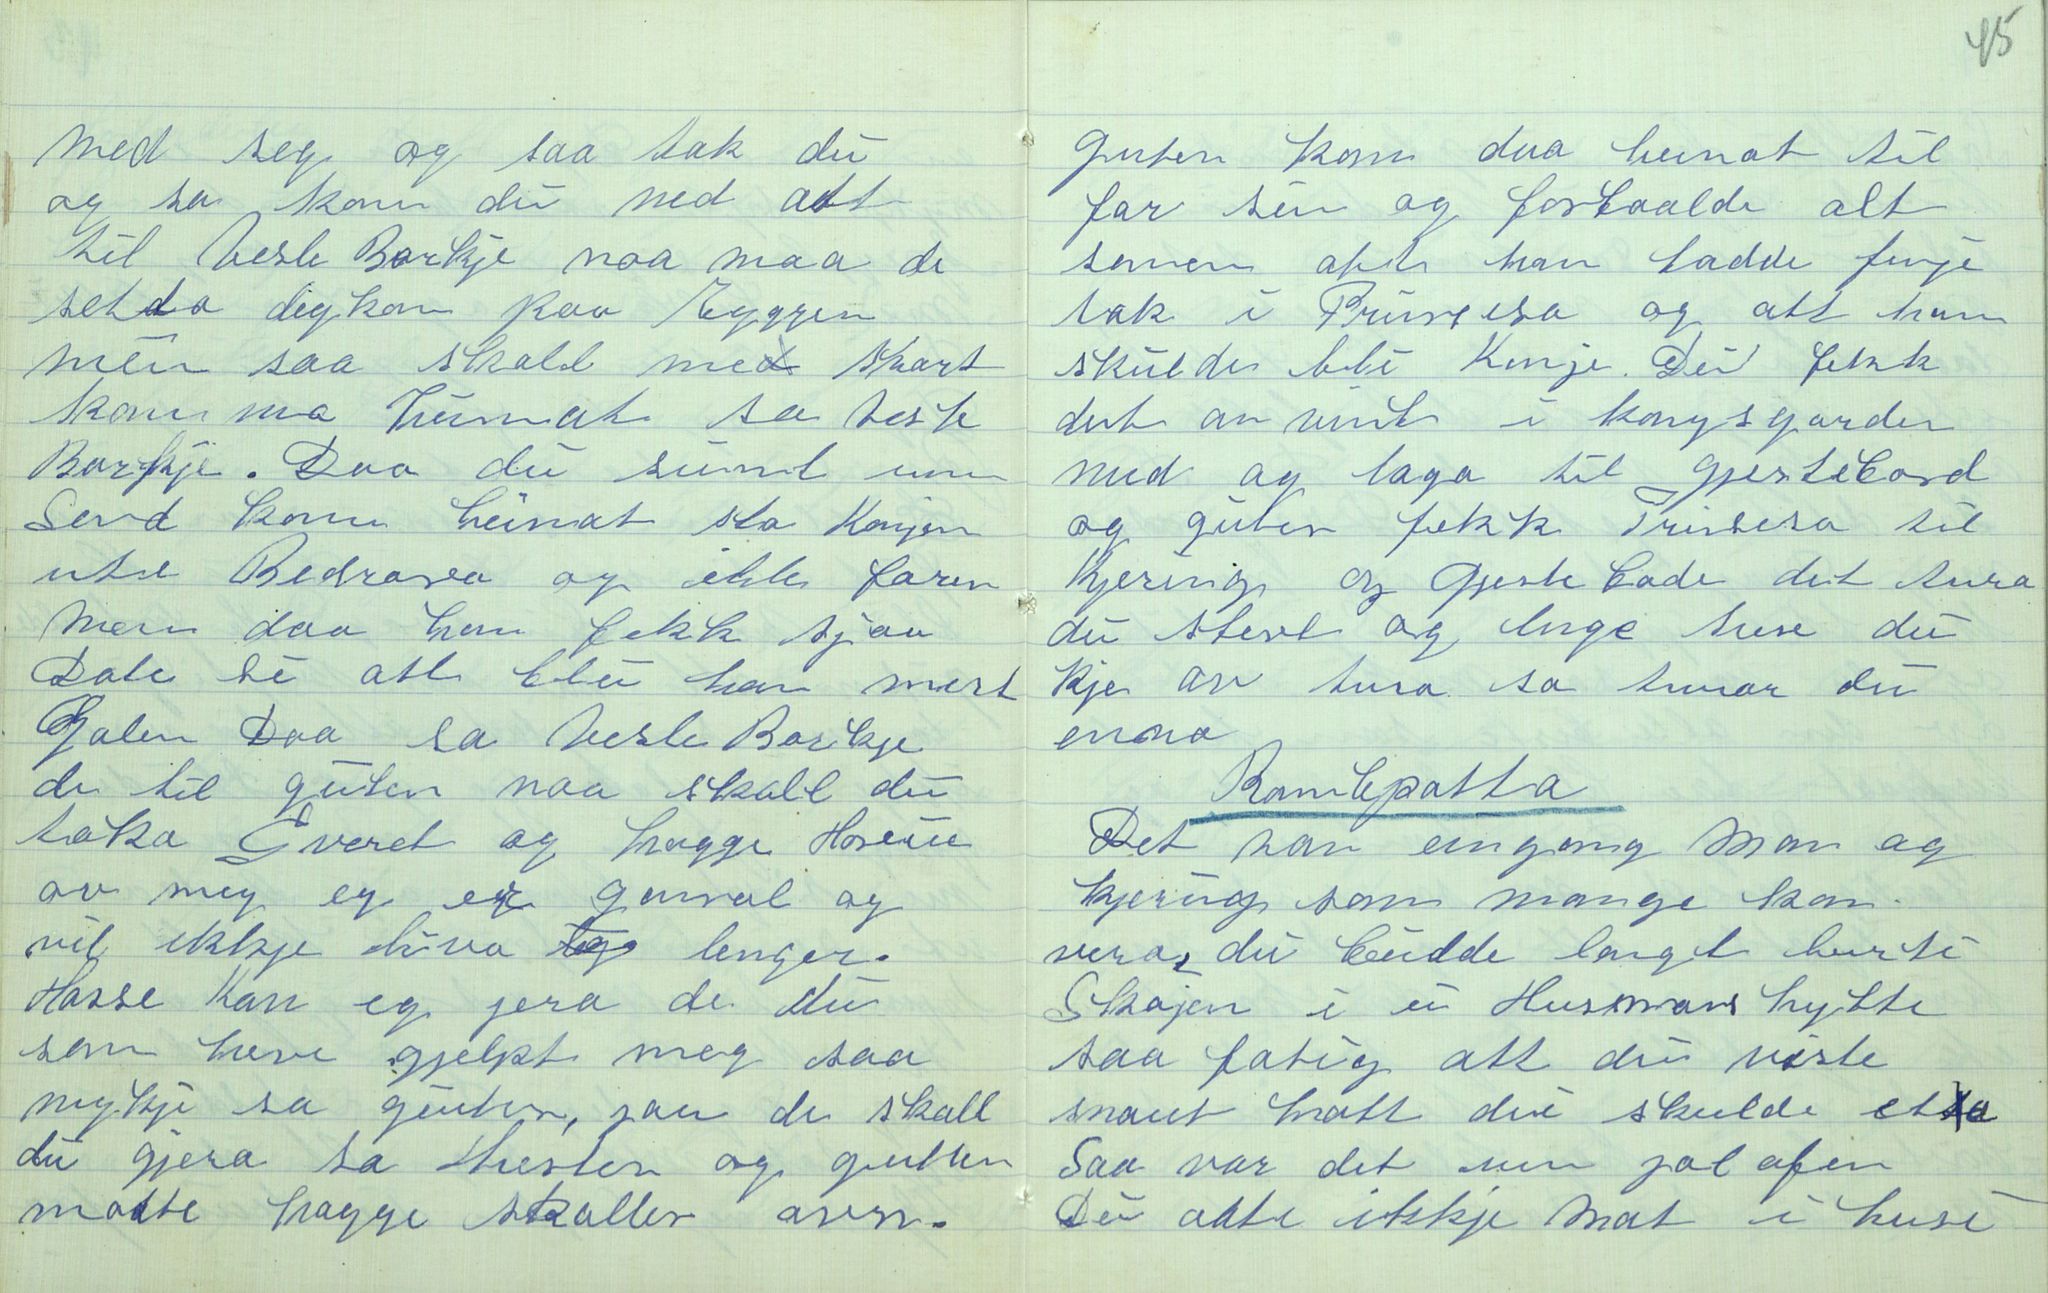 45
med seg og saa tak dü
og sa kom dü ned att
til Vesle Borkje naa maa de
setda degkan paa Ryggen
men saa skall me snart
komma heimat sa vesle
Borkje. Daa dü sünt um
Send kom heimat sto Konjen
ute og ikk faren
men daa han fekk sjaa
Date si att blei han mest
Galen Daa sa Vesle Borkje
de til güten naa skall dü
taka Sveret og hogge Hove
av meg eg er gamal og
vil ikkje liva lenger.
Hosse kan eg jera de dü
som heve gjelpt meg saa
mykje sa güten, jau de skall
dü gjera sa Hesten og gutten
motte hogge skallen avn.
Guten kom daa heimat til
far sin og fortaalde alt
samen att han hadde finje
tak i Prinsesa og att han
skülde bli Konje. Dei fekk
det an vint i kongsgarden
med og laga til gjestebord
og güten fekk Prinsesa til
Kjering og Gjestebode det tura
dü stert og lenge heve dü
kje av tura so turar dü
enno
Romlepotta
Det van eingong Man og
kjering som mange kan
vera, dü budde langt burti
Skojen i ei Husmans hytte
saa fatig att dü viste
snaut hott dü skulde eta
Saa var det um jol aften
Dü atte ikkje Mat i husi